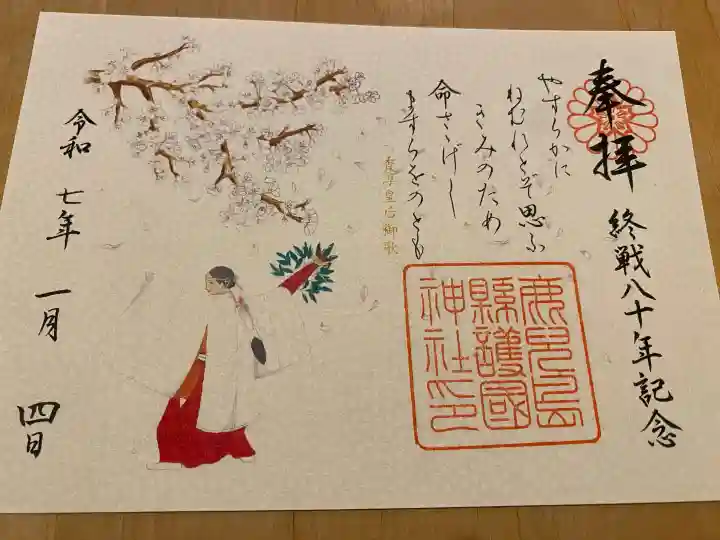 奉拝
終戦八十年記念
やすらかに
ねむれとぞ思ふ
きみのため
命さゝげし
ますらをのとも
香淳皇后御歌
鹿児島
縣護國
神社印
令和 七年 一月 四日